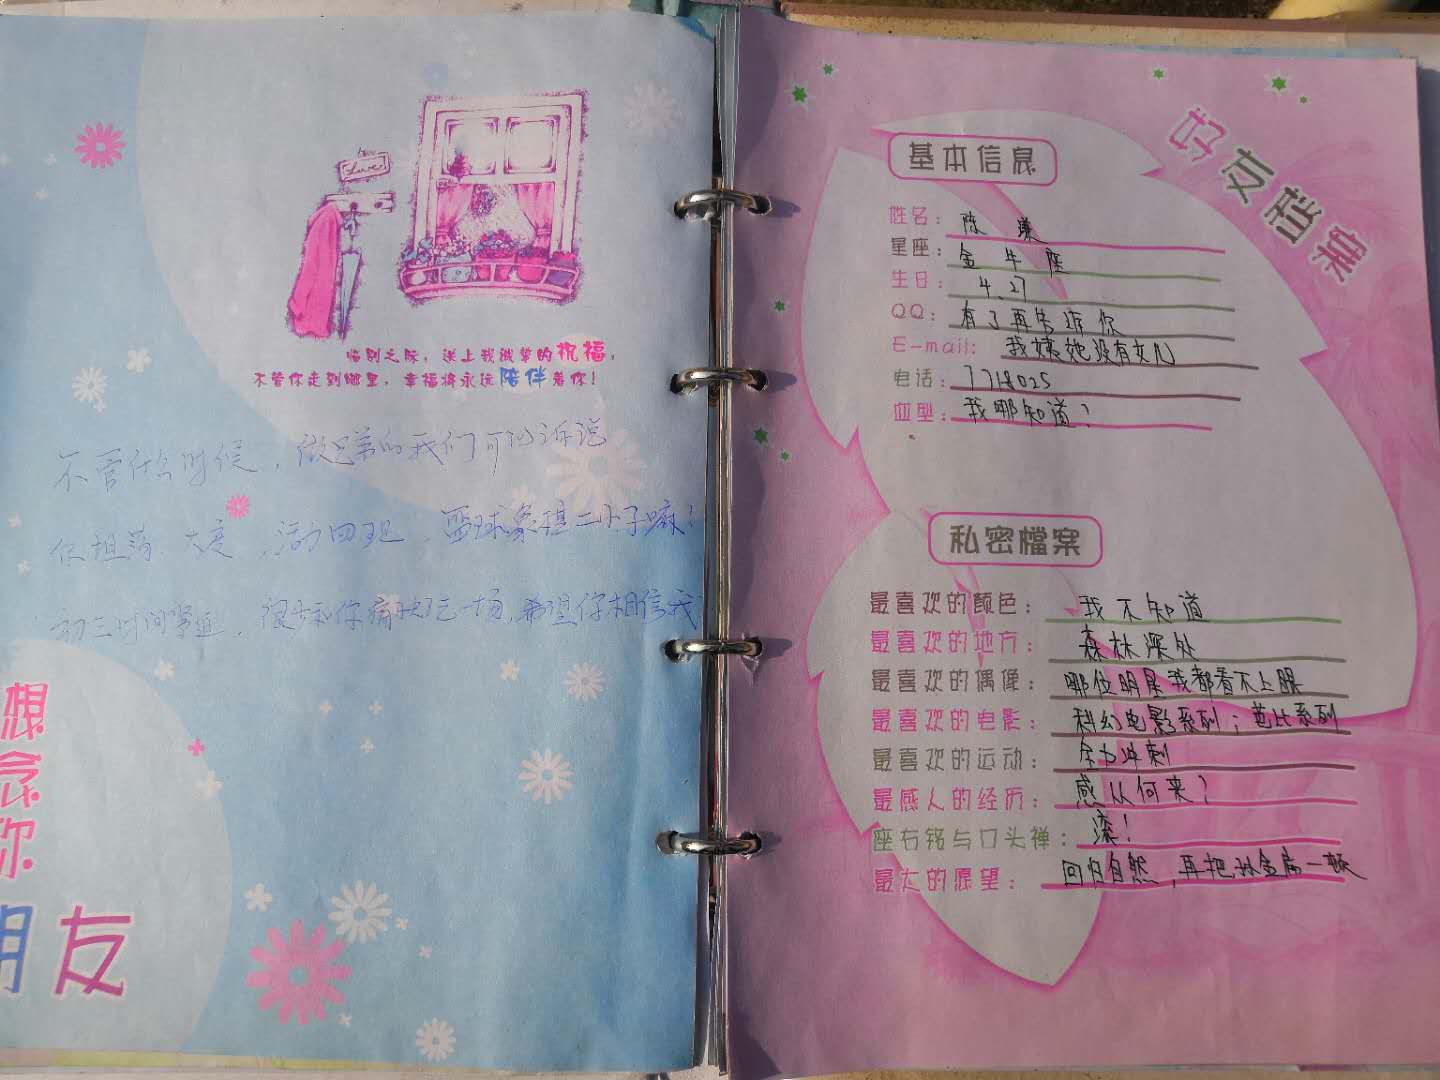 Love
临别之际，送上我诚挚的祝福，
不管你走到哪里，幸福将永远陪伴着你！
不管什么时候，做兄弟的我们可以诉说
你坦荡、大度，活力四班，篮球象棋二小子嘛！
初三时间紧迫，很难和你痛快玩一场，希望你相信我
想念你
朋友
好友档案
基本信息
姓名：陈
星座：金牛座
生日：4.27
QQ：有了再告诉你
E-mail：我姨她没有女儿
电话：7718025
血型：我哪知道？
私密檔案
最喜欢的颜色：我不知道
最喜欢的地方：森林深处
最喜欢的偶像：哪位明星我都看不上眼
最喜欢的电影：科幻电影系列；芭比系列
最喜欢的运动：全力冲刺
最感人的经历：感从何来？
座右铭与口头禅：滚！
最大的愿望：回归自然，再把一顿